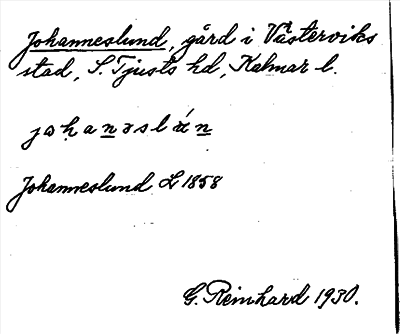 Johanneslund, gård i Västerviks
stad, S. Tjusts hd, Kalmar l.
Johanneslund L 1858
G. Reinhard 1930.